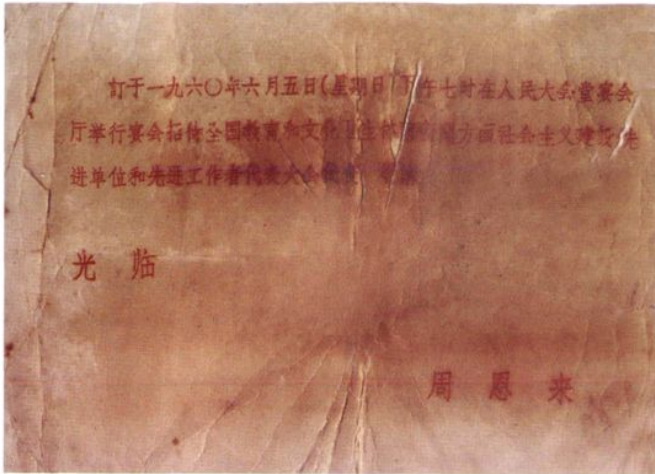 訂于一九六〇年六月五日(星期日)下午七时在人民大会堂宴会
厅举行宴会招待全国教育和文化卫生体育新闻方面社会主义建设先
进单位和先进工作者代表大会代表
光临
周恩来